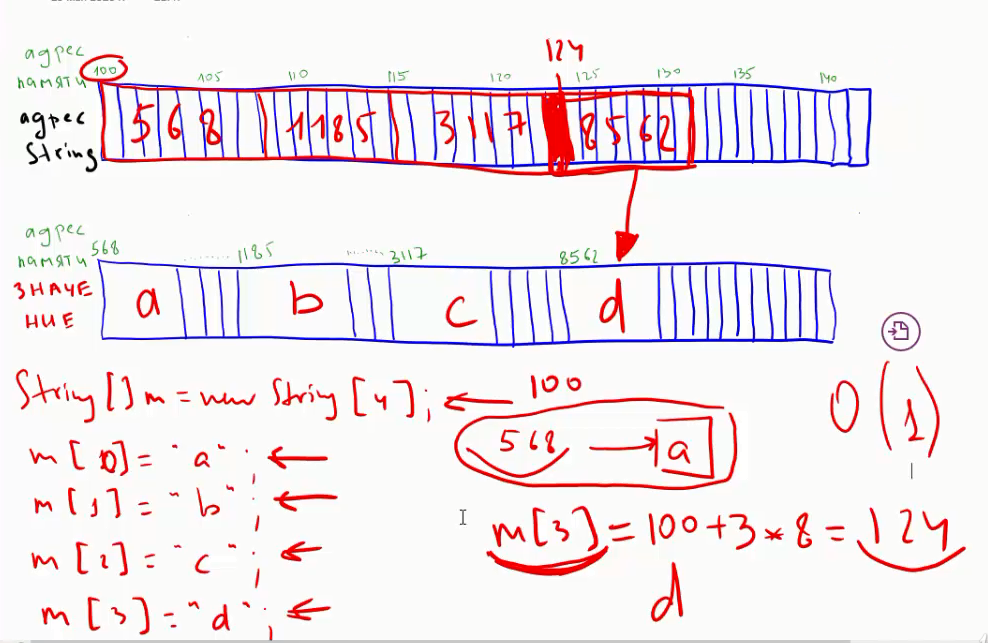 124
адрес
памяти 100 105 110 115 120 125 130 135 140
адрес
String 568 1185 3117 8562
адрес
памяти 568 ........ 1185 ........ 3117 8562
ЗНАЧЕ
НИЕ a b c d
String[] m = new String[4]; 100
568 a
O(1)
m[0] = "a";
m[1] = "b";
m[3] = 100 + 3 * 8 = 124
m[2] = "c";
d
m[3] = "d";